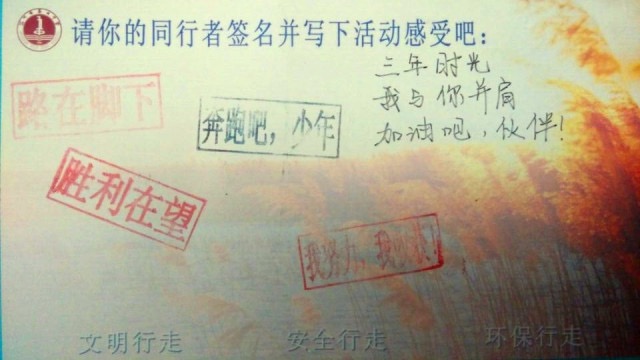 请你的同行者签名并写下活动感受吧：
三年时光
我与你并肩
加油吧，伙伴！
路在脚下
奔跑吧，少年
胜利在望
我努力，我收获！
文明行走
安全行走
环保行走